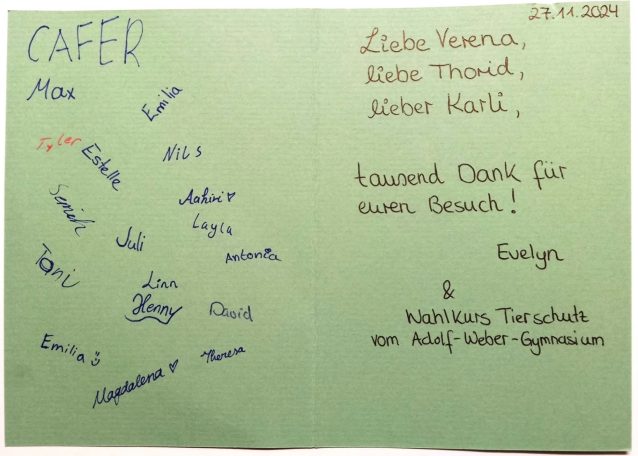 CAFER
Max
Emilia
Tyler
Estelle
Nils
Semih
Aahiri ♥
Layla
Juli
Antonia
Toni
Linn
Henny
David
Emilia ☺
Theresa
Magdalena ♥
27.11.2024
Liebe Verena,
liebe Thorid,
lieber Karli,
tausend Dank für
euren Besuch!
Evelyn
&
Wahlkurs Tierschutz
vom Adolf-Weber-Gymnasium